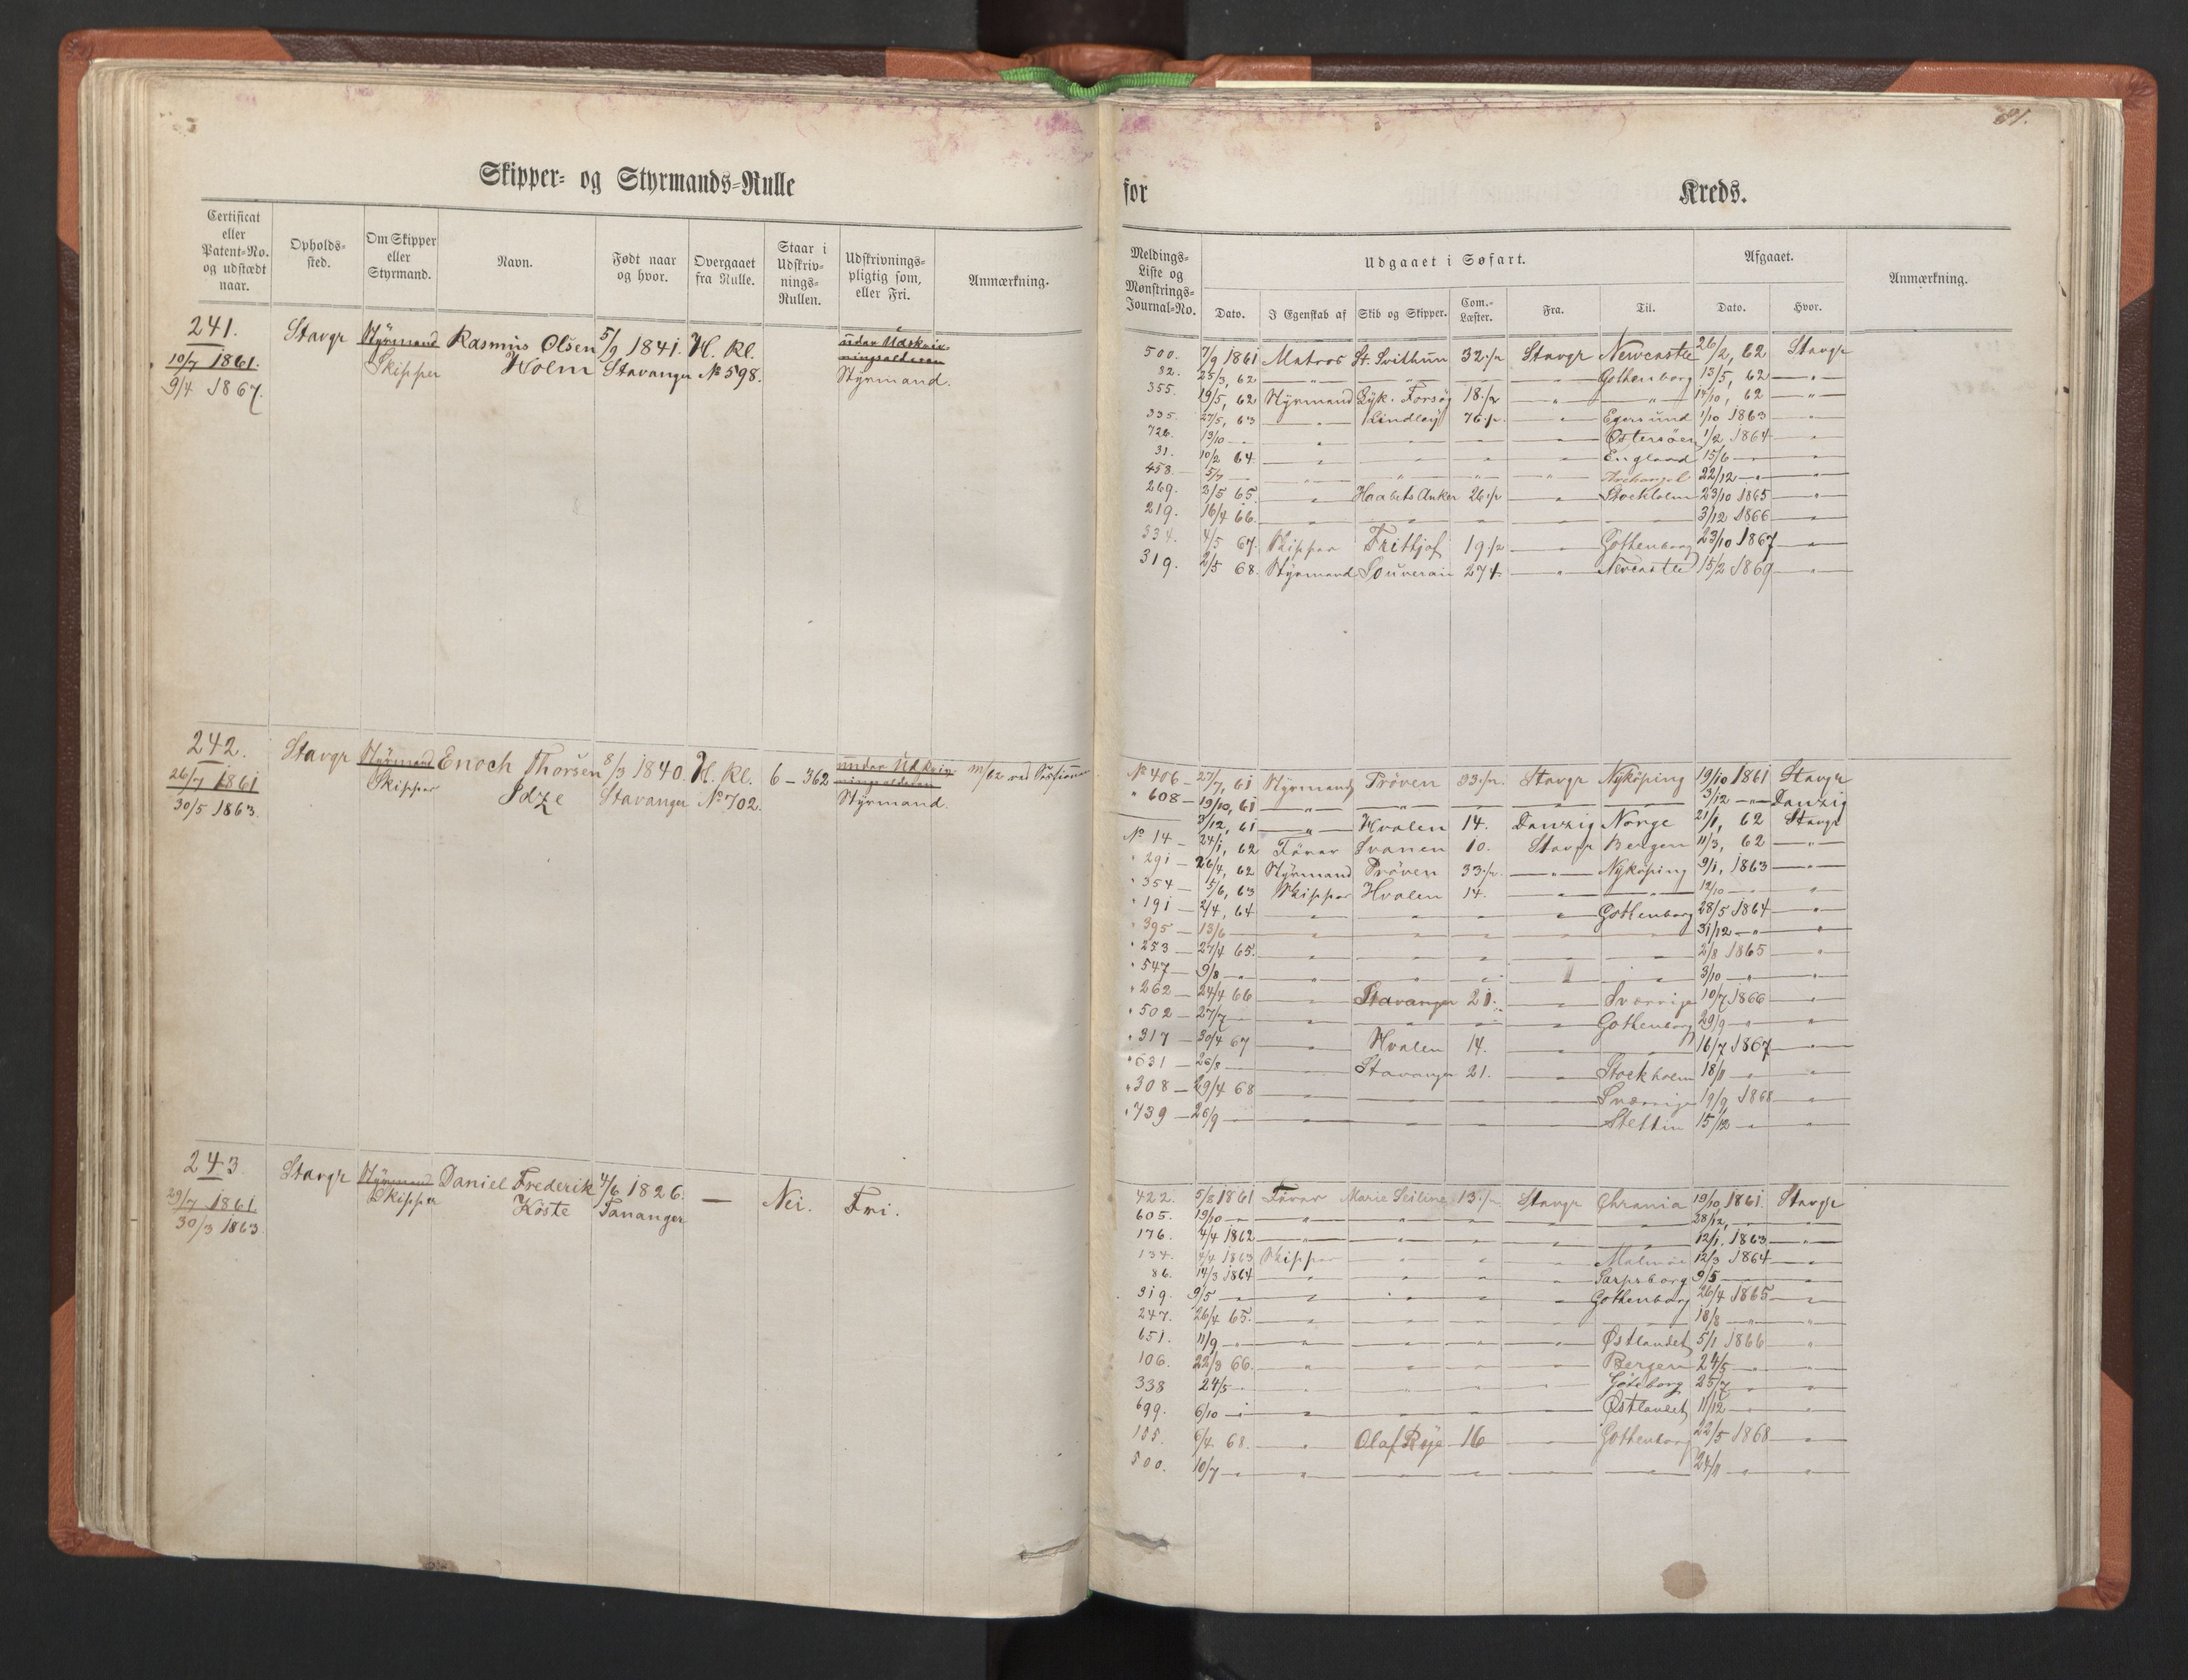 Skipper- og Styrmands-Rulle
Certificat eller Patent-No. og udstædt naar.
Opholds-sted.
Om Skipper eller Styrmand.
Navn.
Født naar og hvor.
Overgaaet fra Rulle.
Staar i Udskriv-nings-Rullen.
Udskrivnings-pligtig som, eller Fri.
Anmærkning.
241. Stavgr Styrmand Rasmus Olsen 5/9 1841. H. Kl. under Udskriv-
10/7 1861. Skipper Holm Stavanger No 598. ningsalderen
9/4 1867. Styrmand.
242. Stavgr Styrmand Enoch Thorsen 8/3 1840. H. Kl. 6 – 362 under Udskriv-
26/7 1861 Skipper Idze Stavanger No 702. ningsalderen
30/5 1863. Styrmand.
243 Stavgr Styrmand Daniel Frederik 4/6 1826. — Nei. Fri.
29/7 1861. Skipper Köste Tananger
30/3 1863.
81.
for Kreds.
Meldings-Liste og Mønstrings-Journal-No.
Udgaaet i Søfart.
Afgaaet.
Anmærkning.
Dato. I Egenskab af Skib og Skipper. Com.-Læster. Fra. Til. Dato. Hvor.
500. 7/9 1861 Matros St. Svithun 32./2 Stavgr Newcastle 26/2, 62 Stavgr
32. 25/3, 62 — " — — — " Gothenborg 15/5, 62 — " —
355. 19/5, 62 Styrmand Lyk. Forsøg 18./2 — " — " — 14/10, 62 — " —
335. 27/5, 63 — " — Lindløy 76./2. — " Egersund 1/10 1863 "
726. 13/10 — " " — " — " — " Østersöen 1/2 1864 — "
31. 10/2 64. — " — " — " — " England 15/6 — " "
458. 5/7 — " — " — " — " — " Archangel 22/12 — " — "
269. 3/5 65. " Haabets Anker 26./2 — " Stockholm 23/10 1865 — "
219. 16/4 66. — " — " — " — " — 3/12 1866 — "
334. 4/5 67. Skipper Frithjof 19/2 — " Gothenborg 23/10 1867 — "
319. 2/5 68. Styrmand Souverain 274 — " Newcastle 15/2 1869 — "
No 406 – 27/7, 61 Styrmand Pröven 33./2. Stavgr Nyköping 19/10 1861 Stavgr
" 608 – 19/10, 61 — " — — " — — — — 3/12 — " — Danzig
3/12, 61 — " — Hvalen 14. Danzig Norge 21/1, 62 Stavgr
No 14 – 24/1, 62 Förer Svanen 10. Stavgr Bergen 11/3, 62 — " —
" 291 – 26/4, 62 Styrmand Pröven 33./2. — " — Nyköping 9/1, 1863 — " —
" 354 – 5/6, 63 Skipper Hvalen 14. — " — 12/10 — "
" 191 – 2/4, 64 " " " " Gothenborg 28/5 1864 — "
" 395 – 13/6 — " " " " — 31/12 — " — "
" 253 – 27/4 65. — " " " " — 2/8 1865 — "
" 547 – 9/8 — " — " " " — 3/10 — " — "
" 262 – 24/4 66 — " Stavanger 21. — " Sverrige 10/7 1866 — "
" 502 – 27/7 — " — " — " — " Gothenborg 29/9 — " — "
" 317 – 30/4 67 — " Hvalen 14. — " — 16/7 1867 — "
" 631 – 26/8 — " Stavanger 21. — " Stockholm 18/11 — " "
" 308 – 29/4 68 — " — — — Sverrige 19/9 1868 — "
" 739 – 26/9 — " — — — Stettin 15/12 — " "
422. 5/8 1861 Förer Marie Seiline 13./2 Stavgr Chrania 19/10 1861. Stavgr
605. 19/10 — " — " " " " — 28/12, — " —
176. 4/4 1862 — " — " " " — 12/1. 1863 — " —
134. 4/4 1863 Skipper " " " Malmöe 12/3 1864 — "
86. 14/3 1864 — " " " " Sarpsborg 9/5 — "
319. 9/5 — " " " " " Gothenborg 26/4 1865 — "
247. 26/4 65. — " " " " — 18/8 — " "
651. 11/9 — " — " " " " Østlandet 5/1 1866 "
106. 22/3 66. — " " " " Bergen 24/5 — " "
338 24/5 — " " " " Göteborg 25/7 — " "
699. 6/10 — " " " " Østlandet 11/12 — " "
155. 6/4 68. — " Olaf Rye 16 — Gothenborg 22/5 1868 "
500. 10/7 — " — " — " — " — 24/11 — " "